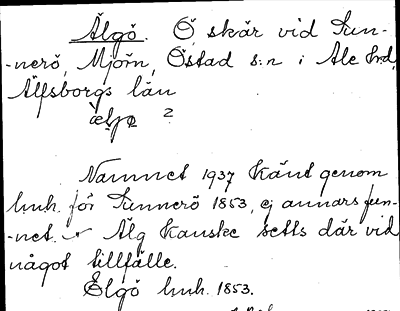 Älgö. Ö, skär vid Sun-
-nerö, Mjörn, Östad s:n i Ale hd,
Älfsborgs län
?
Namnet 1937 känt genom
huh. för Sunnerö 1853, ej annars fun-
-net. Älg kanske setts där vid
något tillfälle.
Elgö huh. 1853.